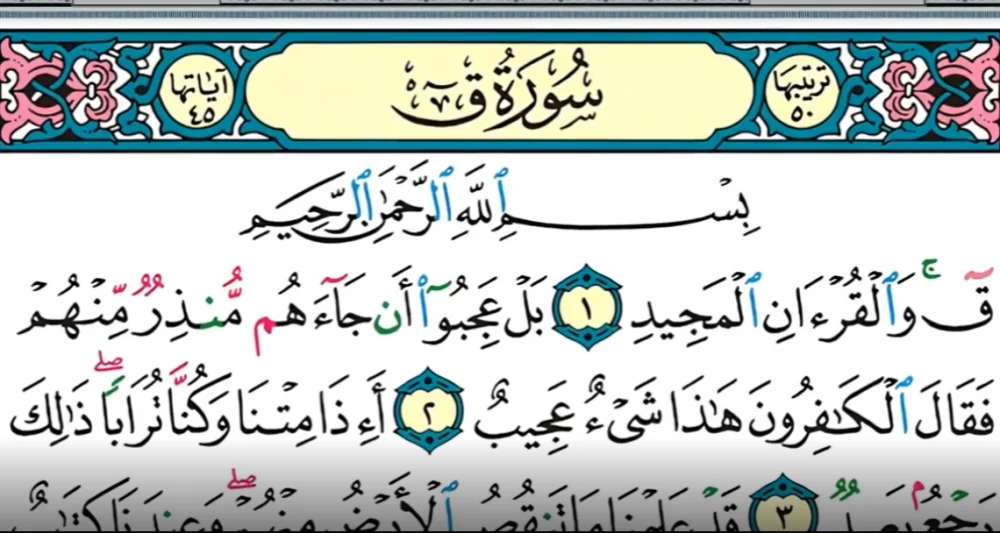 ترتيبها ٥٠
سُورَةُ قٓ
آياتها ٤٥
بِسْمِ ٱللَّهِ ٱلرَّحْمَٰنِ ٱلرَّحِيمِ
قٓ ۚ وَٱلْقُرْءَانِ ٱلْمَجِيدِ ١ بَلْ عَجِبُوٓا۟ أَن جَآءَهُم مُّنذِرٌ مِّنْهُمْ
فَقَالَ ٱلْكَٰفِرُونَ هَٰذَا شَىْءٌ عَجِيبٌ ٢ أَءِذَا مِتْنَا وَكُنَّا تُرَابًا ۖ ذَٰلِكَ
رَجْعٌۢ بَعِيدٌ ٣ قَدْ عَلِمْنَا مَا تَنقُصُ ٱلْأَرْضُ مِنْهُمْ ۖ وَعِندَنَا كِتَٰبٌ